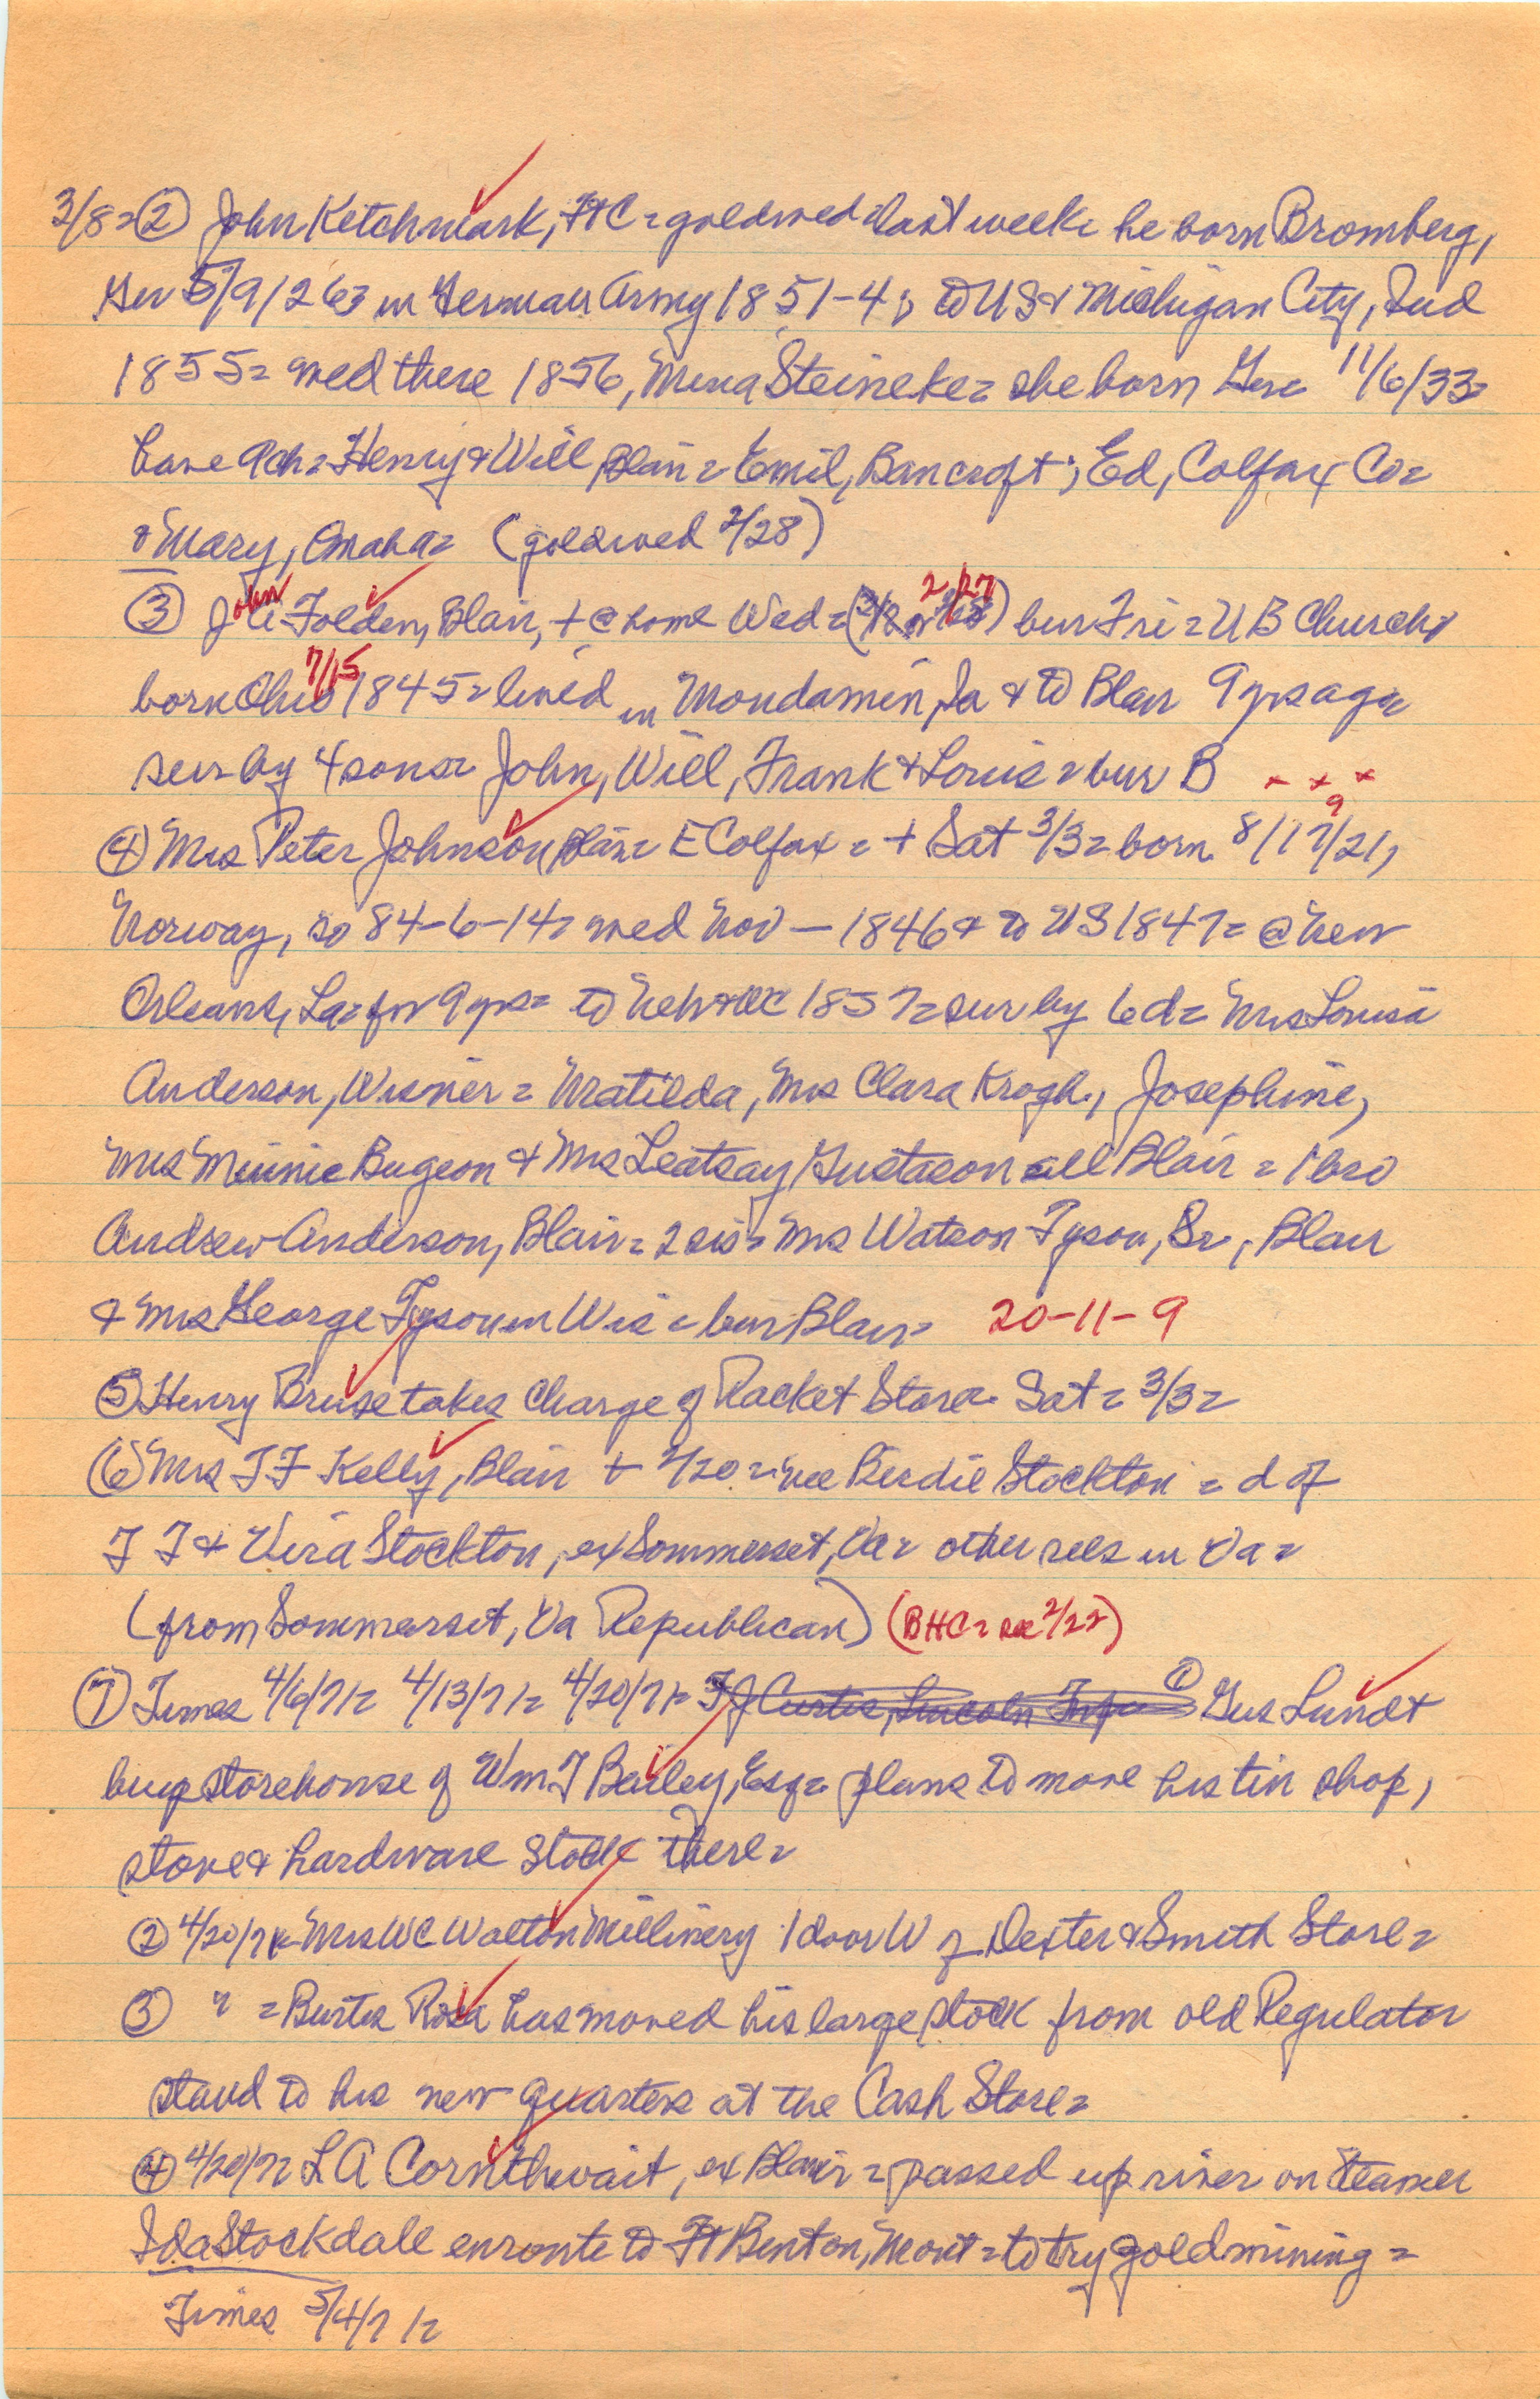 3/8= ② John Ketchmark, Ft C = goldwed = last week = he born Bromberg,
Ger 5/9/26 = in German Army 1851-4 = to US & Michigan City, Ind
1855 = wed there 1856, Mena Steineke = she born Ger = 11/6/33 =
have 9 ch = Henry & Will, Blair = Emil, Bancroft; Ed, Colfax Co =
& Mary, Omaha = (goldwed 2/28)
③ John Folden, Blair, + @ home Wed = ( 2/27) bur Fri = U B Church
born Ohio 7/15 1845 = lived in Mondamin, Ia & to Blair 9 yrs ago
sur by 4 sons = John, Will, Frank & Louis = bur B x x x
④ Mrs Peter Johnson, Blair = E Colfax = + Sat 3/3 = born 8/19/21,
Norway, so 84-6-14 = wed Nov — 1846 & to US 1847 = @ New
Orleans, La = for 9 yrs = to Neb & WC 1857 = sur by 6 d = Mrs Louisa
Anderson, Wisner = Matilda, Mrs Clara Krogh, Josephine,
Mrs Minnie Bugeon & Mrs Leatsay Gustason all Blair = 1 bro
Andrew Anderson, Blair = 2 sis = Mrs Watson Tyson, Sr, Blair
& Mrs George Tyson in Wis = bur Blair = 20-11-9
⑤ Henry Bruse takes charge of Racket Store = Sat = 3/3 =
⑥ Mrs T F Kelly, Blair + 2/20 = nee Birdie Stockton = d of
T J & Vira Stockton, ex Sommerset, Va = other rels in Va =
(from Sommerset, Va Republican) (BHC = see 2/22)
⑦ Times 4/6/71 = 4/13/71 = 4/20/71 = T J Curtis, Lincoln ① Gus Lundt
buys storehouse of Wm J Bailey, Esq = plans to move his tin shop,
stove & hardware stock there =
② 4/20/71 = Mrs WC Walton Millinery 1 door W of Dexter & Smith Store =
③ " = Burtis Rosa has moved his large stock from old Regulator
stand to his new quarters at the Cash Store =
④ 4/20/71 = L A Cornthwait, ex Blair = passed up river on Steamer
Ida Stockdale enroute to Ft Benton, Mont = to try goldmining =
Times 5/4/71 =